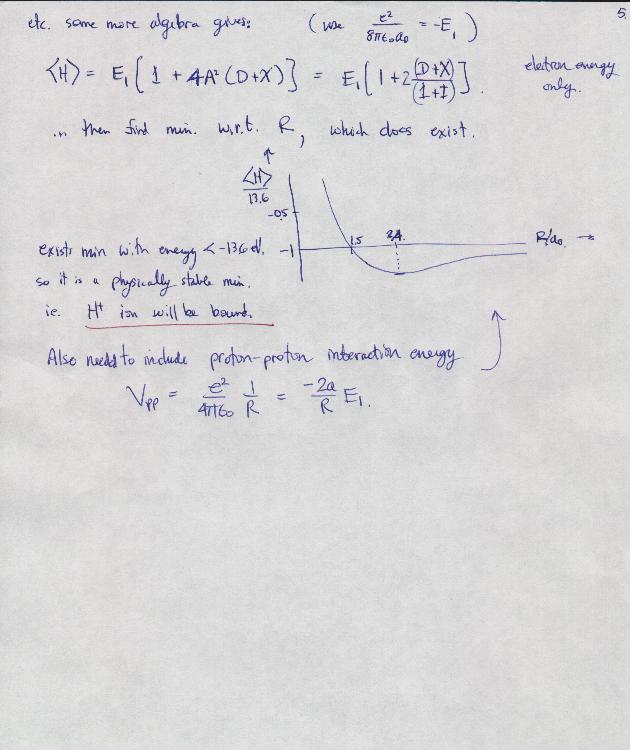 5.
etc. some more algebra gives: (use e²/8πε₀a₀ = -E₁)
⟨H⟩ = E₁[1 + 4A²(D+X)] = E₁[1+2(D+X)/(1+I)]. electron energy only.
... then find min. w.r.t. R, which does exist.
⟨H⟩/13.6
-0.5
1.5 2.4 R/a₀ →
exists min with energy < -13.6 eV. -1
so it is a physically stable min.
ie. H⁺ ion will be bound.
Also need to include proton-proton interaction energy
Vpp = e²/4πε₀ 1/R = -2a/R E₁.